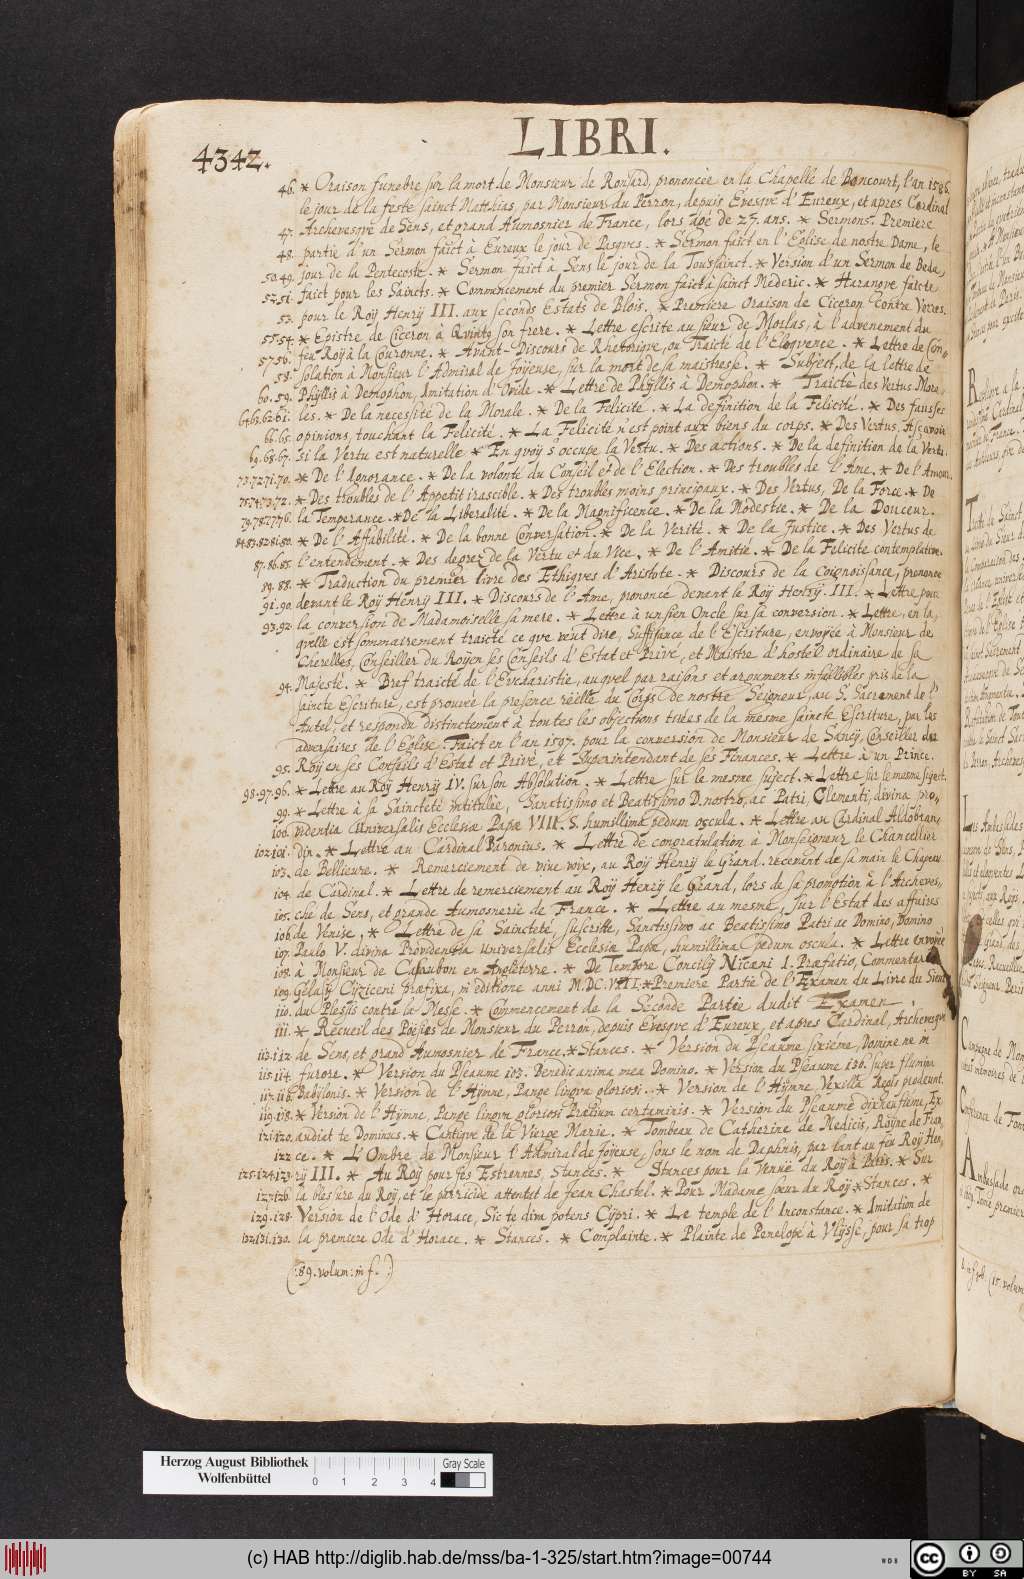 4342.
LIBRI.
46. * Oraison funebre sur la mort de Monsieur de Ronsard, prononcée en la Chapelle de Boncourt, l'an 1586.
le jour de la feste sainct Matthias, par Monsieur du Perron, depuis Evesqve d'Eureux, et apres Cardinal
47. Archevesqve de Sens, et grand Aumosnier de France, lors agé de 27. ans. * Sermons. Premiere
48. partie d'un Sermon faict à Eureux le jour de Pasqves. * Sermon faict en l'Eglise de nostre Dame, le
50.49. jour de la Pentecoste. * Sermon faict à Sens le jour de la Toussainct. * Version d'un Sermon de Beda,
52.51. faict pour les Saincts. * Commencement du premier Sermon faict à sainct Mederic. * Harangve faicte
53. pour le Roÿ Henrÿ III. aux seconds Estats de Blois. * Premiere Oraison de Ciceron contre Verres.
55.54. * Epistre de Ciceron à Qvintg son frere. * Lettre escrite au sieur de Morlas, à l'advenement du
57.56. feu Roÿ à la Couronne. * Avant-Discours de Rhetoriqve, ou Traicte de l'Eloqvence. * Lettre de Con-
58. solation à Monsieur l'Admiral de Joÿeuse, sur la mort de sa maistresse. * Subject de la lettre de
60.59. Phÿllis à Demophon, Imitation d'Ovide. * Lettre de Phÿllis à Demophon. * Traicté des Vertus Mora-
64.63.62.61. les. * De la necessité de la Morale. * De la Felicité. * La definition de la Felicité. * Des fausses
66.65. opinions, touchant la Felicité. * La Felicité n'est point aux biens du corps. * Des Vertus, Asçavoir
69.68.67. si la Vertu est naturelle * En qvoÿ s'occupe la Vertu. * Des actions. * De la definition de la Vertu.
73.72.71.70. * De l'Ignorance. * De la volonté du Conseil et de l'Election. * Des troubles de l'Ame. * De l'Amour.
* Des troubles de l'Appetit irascible. * Des troubles moins principaux. * Des Vertus, De la Force. * De
79.78.77.76. la Temperance. * De la Liberalité. * De la Magnificence. * De la Modestie. * De la Douceur.
84.83.82.81.80. * De l'Affabilité. * De la bonne Conversation. * De la Verité. * De la Justice. * Des Vertus de
87.86.85. l'entendement. * Des degrez de la Vertu et du Vice. * De l'Amitié. * De la Felicité contemplative.
89.88. * Traduction du premier livre des Ethiqves d'Aristote. * Discours de la coignoissance, prononcé
91.90. devant le Roÿ Henrÿ III. * Discours de l'Ame, prononcé devant le Roÿ Henrÿ III. * Lettre pour
93.92. la conversion de Madamoiselle sa mere. * Lettre à un sien Oncle sur sa conversion. * Lettre, en la,
qvelle est sommairement traicté ce qve veut dire, Suffisance de l'Escriture, envoÿée à Monsieur de
Cherelles, Conseiller du Roÿ en ses Conseils d'Estat et Privé, et Maistre d'hostel ordinaire de sa
94. Majesté. * Bref traicté de l'Evcharistie, auqvel par raisons et argumens infallibles pris la la
saincte Escriture, est prouvée la presence réélle du Corps de nostre Seigneur, au S. Sacrement de l'
Autel, et respondu distinctement à toutes les objections tirées de la mesme saincte Escriture, par les
adversaires de l'Eglise. Faict en l'an 1597. pour la conversion de Monsieur de Sancÿ, Conseiller du
95. Roÿ en ses Conseils d'Estat et Privé, et Superintendent de ses Finances. * Lettre à un Prince.
98.97.96. * Lettre au Roÿ Henrÿ IV. sur son Absolution. * Lettre sur le mesme suject. * Lettre sur le mesme suject.
99. * Lettre à sa Saincteté intitulée, Sanctissimo et Beatissimo D. nostro, ac Patri, Clementi, divina pro-
100. videntia Universalis Ecclesiæ Papæ VIII. S. humillima pedum oscula. * Lettre au Cardinal Aldobran-
102.101. din. * Lettre au Cardinal Baronius. * Lettre de congratulation à Monseigneur le Chancellier
103. de Bellieure. * Remerciement de vive voix, au Roÿ Henrÿ le Grand, recevant de sa main le Chapeau
104. de Cardinal. * Lettre de remerciement au Roÿ Henrÿ le Grand, lors de sa promotion à l'Archeves-
105. ché de Sens, et grande Aumosnerie de France. * Lettre au mesme, sur l'Estat des affaires
106. de Venise. * Lettre de sa Saincteté, suscritte, Sanctissimo ac Beatissimo Patri ac Domino, Domino
107. Paulo V. divina Providentia universalis Ecclesiæ Papæ, humillima pedum oscula. * Lettre envoÿée
108. à Monsieur de Casaubon en Angleterre. * De Tempore Concilÿ Nicæni I. Præfatio, Commentario
109. Gelasÿ Cÿziceni præfixa, in editione anni M.DC.VIII. * Premiere Partie de l'Examen du Livre du Sieur
110. du Plessis contre la Messe. * Commencement de la Seconde Partie dudit Examen.
111. * Recueil des Poësies de Monsieur du Perron, depuis Evesqve d'Eureux, et apres Cardinal, Archevesqve
113.112. de Sens, et grand Aumosnier de France. * Stances. * Version du Pseaume sixieme, Domine ne in
115.114. furore. * Version du Pseaume 103. Benedic anima mea Domino. * Version du Pseaume 136. Super flumina
117.116. Babÿlonis. * Version de l'Hÿmne, Pange lingva gloriosi. * Version de l'Hÿmne, Vexilla Regis prodeunt.
119.118. * Version de l'Hÿmne, Pange lingva gloriosi Prælium certaminis. * Version du Pseaume dixneufieme, Ex-
121.120. audiat te Dominus. * Cantiqve de la Vierge Marie. * Tombeau de Catherine de Medicis, Roÿne de Fran-
122. ce. * L'Ombre de Monsieur l'Admiral de Joÿeuse, sous le nom de Daphnis, parlant au feu Roÿ Hen-
125.124.123. rÿ III. * Au Roÿ pour ses Estrennes, Stances. * Stances pour la venue du Roÿ à Paris. * Sur
127.126. la blessure du Roÿ, et le parricide attentat de Jean Chastel. * Pour Madame sœur du Roÿ * Stances. *
129.128. Version de l'Ode d'Horace, Sic te diva potens Cÿpri. * Le temple de l'Inconstance. * Imitation de
132.131.130. la premiere Ode d'Horace. * Stances. * Complainte. * Plainte de Penelope à Vlÿsse, pour sa trop
(:89. volum: in f.:)
Herzog August Bibliothek
Wolfenbüttel
0 1 2 3 4
Gray Scale
(c) HAB http://diglib.hab.de/mss/ba-1-325/start.htm?image=00744
WDB
cc BY SA